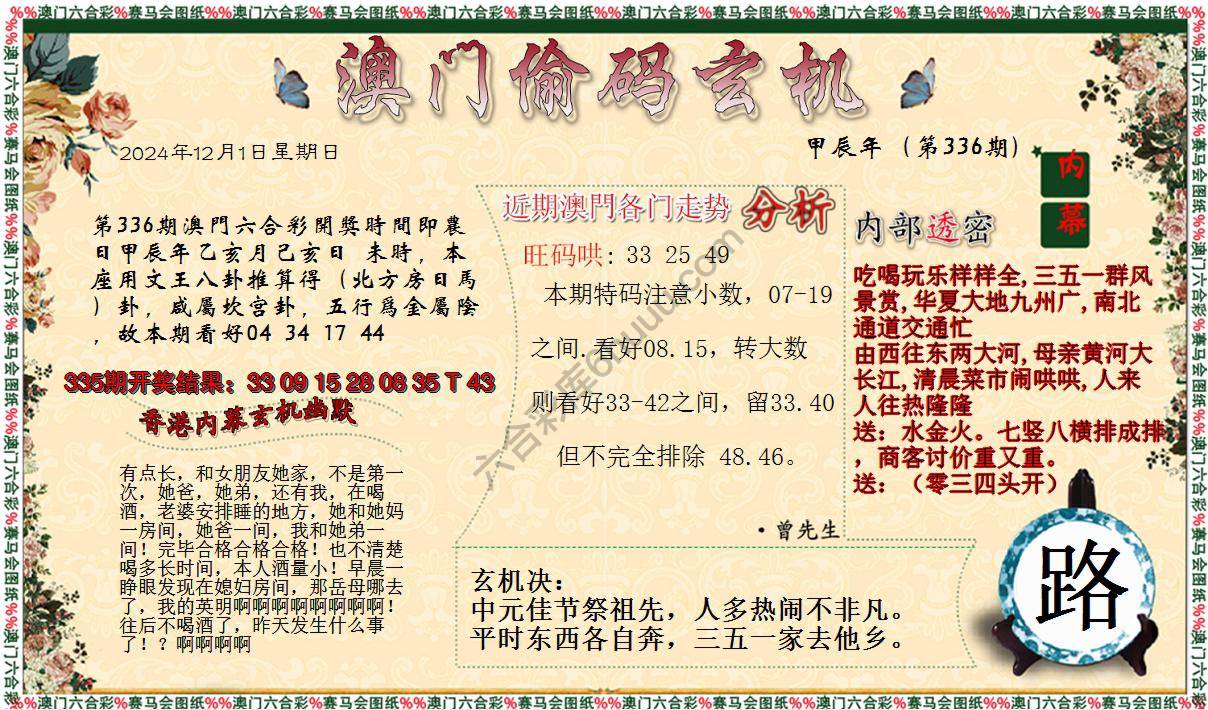 %%澳门六合彩%赛马会图纸%%澳门六合彩%赛马会图纸%%澳门六合彩%赛马会图纸%%澳门六合彩%赛马会图纸%%澳门六合彩%赛马会图纸%%澳门六合彩%赛马会图纸%%
澳门偷码玄机
2024年12月1日星期日
甲辰年（第336期）
内幕
第336期澳門六合彩開獎時間即農
日甲辰年乙亥月己亥日 未時，本
座用文王八卦推算得（北方房日馬
）卦，咸屬坎宫卦，五行爲金屬陰
，故本期看好04 34 17 44
335期开奖结果：33 09 15 28 08 35 T 43
香港内幕玄机幽默
有点长，和女朋友她家，不是第一
次，她爸，她弟，还有我，在喝
酒，老婆安排睡的地方，她和她妈
一房间，她爸一间，我和她弟一
间！完毕合格合格合格！也不清楚
喝多长时间，本人酒量小！早晨一
睁眼发现在媳妇房间，那岳母哪去
了，我的英明啊啊啊啊啊啊啊啊！
往后不喝酒了，昨天发生什么事
了！？啊啊啊啊
近期澳門各门走势 分析
旺码哄: 33 25 49
本期特码注意小数，07-19
之间.看好08.15，转大数
则看好33-42之间，留33.40
但不完全排除 48.46。
·曾先生
内部透密
吃喝玩乐样样全,三五一群风
景赏,华夏大地九州广,南北
通道交通忙
由西往东两大河,母亲黄河大
长江,清晨菜市闹哄哄,人来
人往热隆隆
送：水金火。七竖八横排成排
，商客讨价重又重。
送：（零三四头开）
玄机决：
中元佳节祭祖先，人多热闹不非凡。
平时东西各自奔，三五一家去他乡。
路